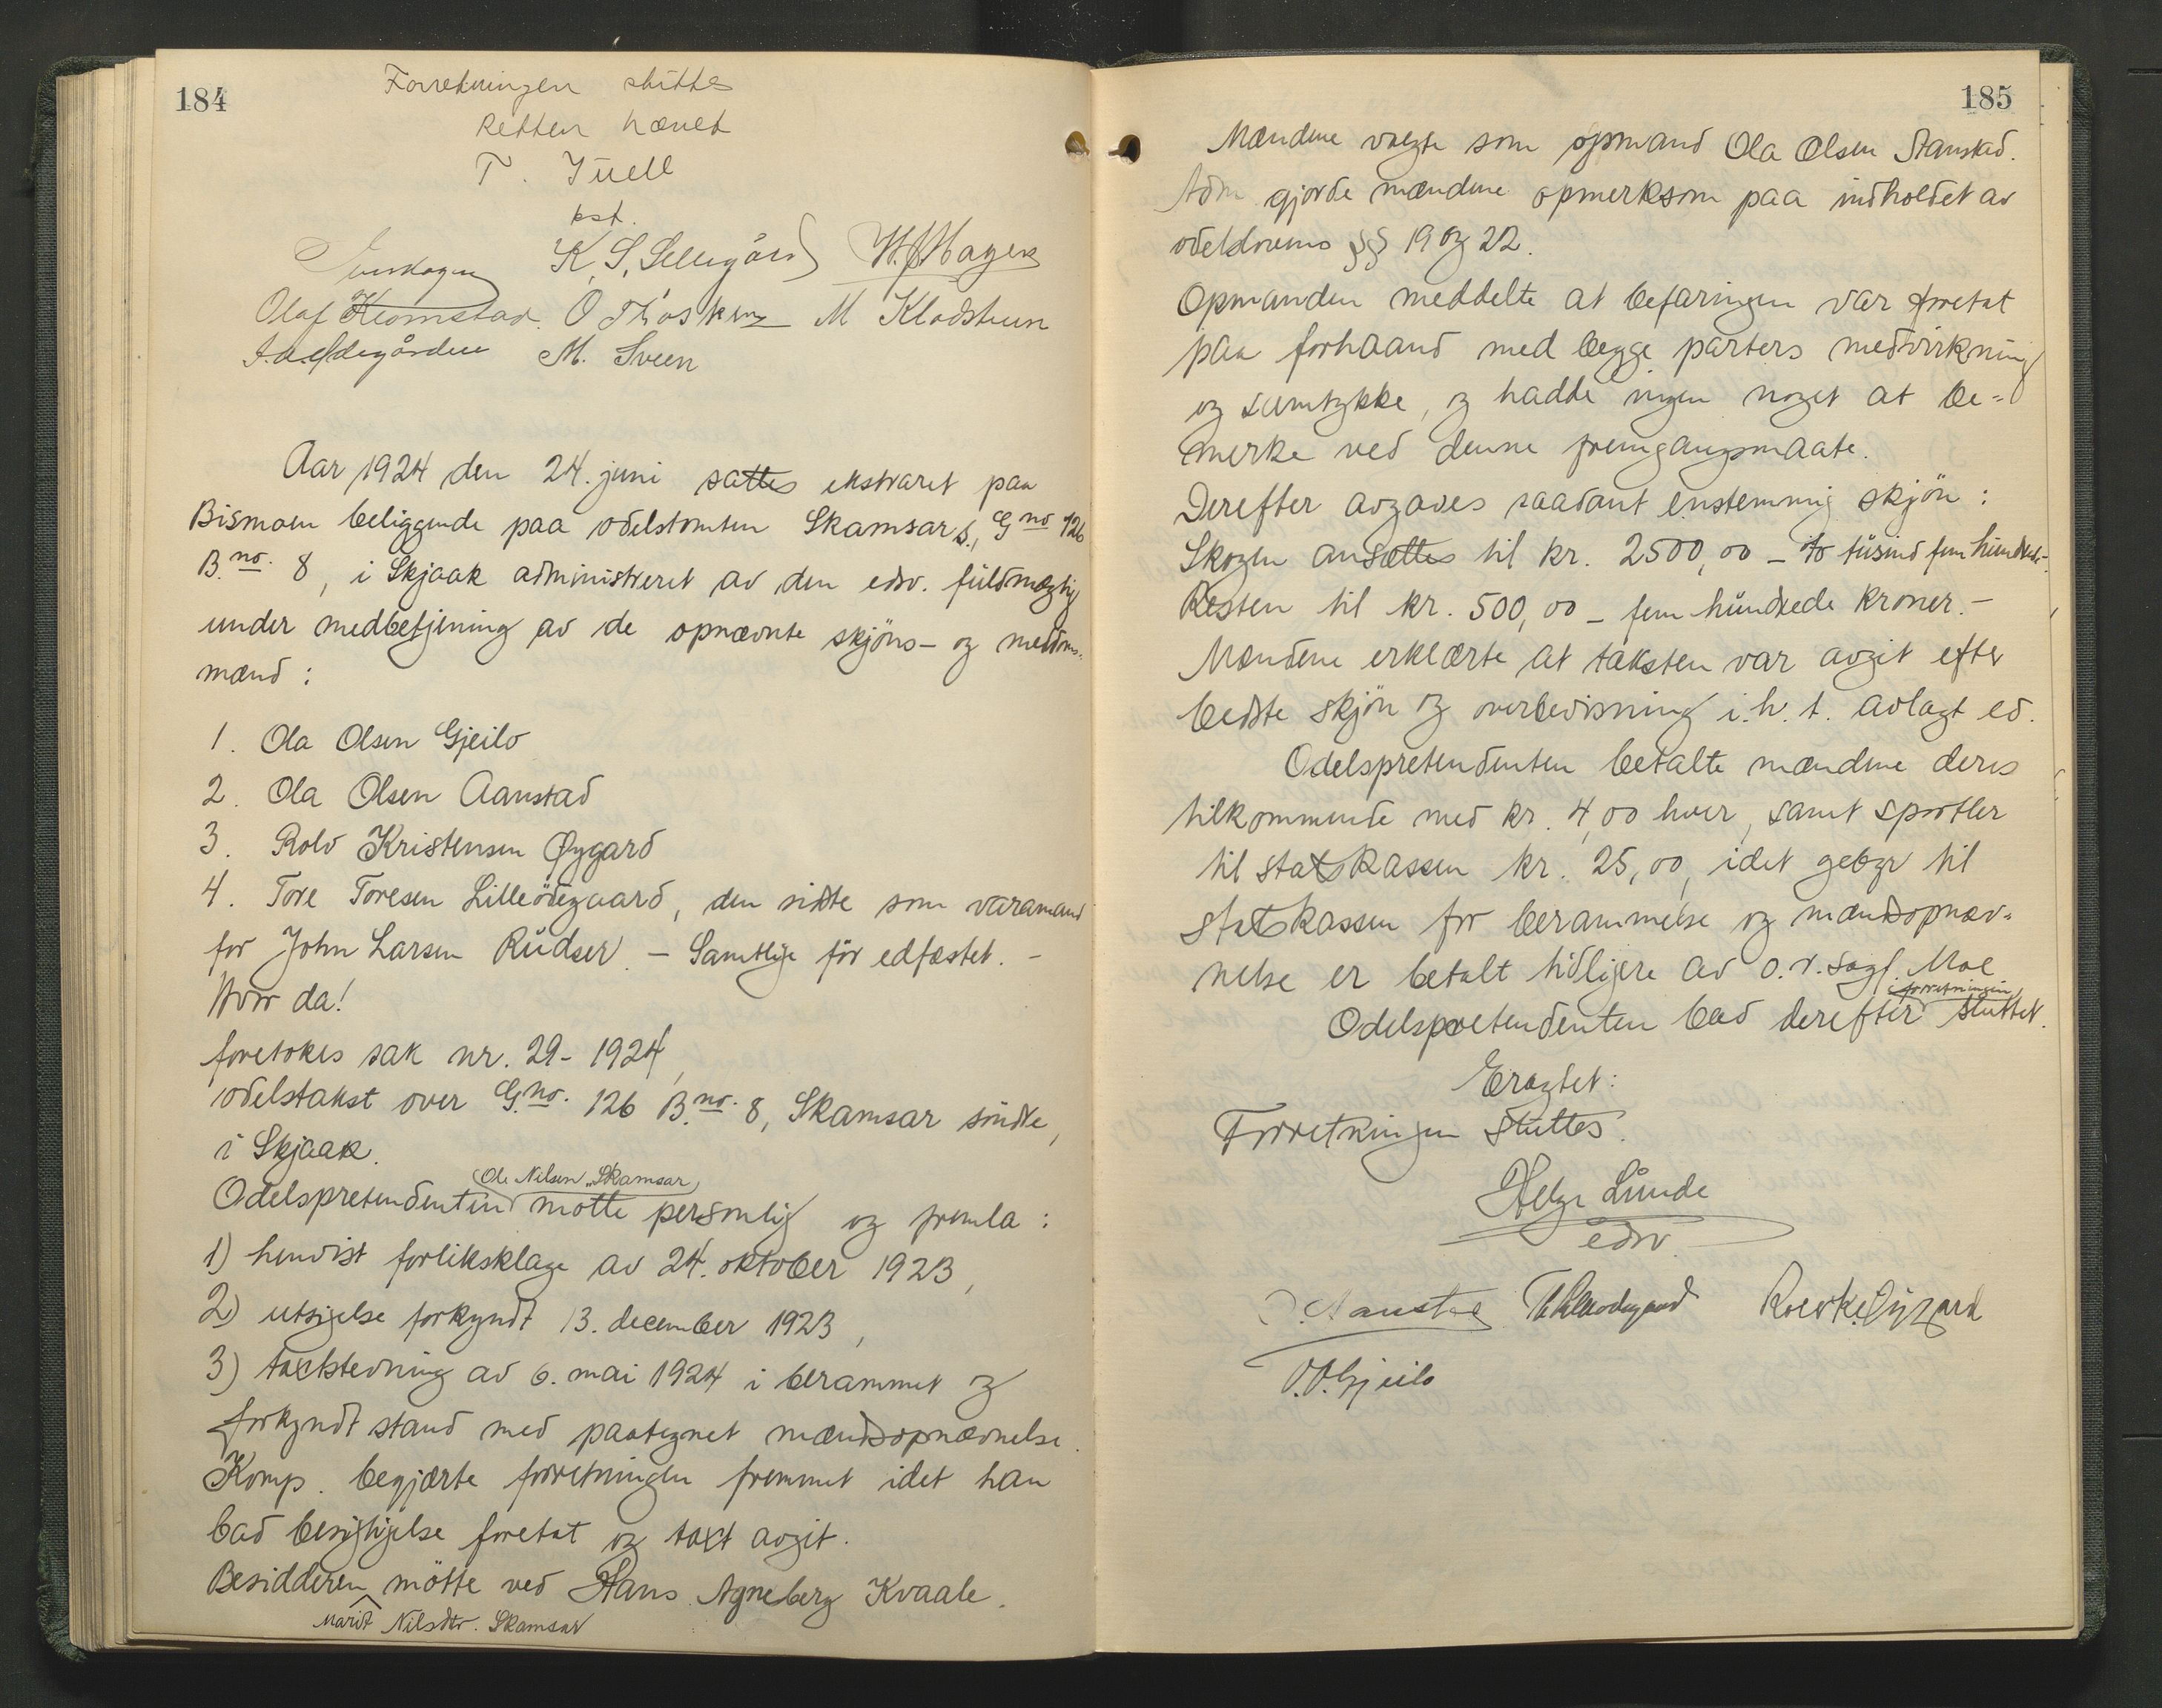 184
Forretningen sluttes
Retten hævet
T. Juell
kst.
K. S. Sellegård
Olaf Kromstad. M Kladsteen
M. Sveen
Aar 1924 den 24. juni sattes ekstraret paa
Bismoen beliggende paa odelstomten Skamsar s., G no 126
B. no. 8, i Skjaak administreret av den edsv. fuldmægtig
under medbetjening av de opnævnte skjöns- og meddoms-
mænd :
1. Ola Olsen Gjeilo
2. Ola Olsen Aanstad
3. Rolv Kristensen Øygard
4. Tore Toresen Lilleödegaard, den sidste som varamand
for John Larsen Rudser. - Samtlige för edfæstet. -
Hvor da!
foretokes sak nr. 29 - 1924,
odelstakst over G. no. 126 B. no. 8, Skamsar söndre,
i Skjaak.
Odelspretendenten Ole Nilsen Skamsar mötte personlig og fremla :
1) henvist forliksklage av 24. oktober 1923,
2) utsigelse forkyndt 13. december 1923,
3) takststevning av 6. mai 1924 i berammet og
forkyndt stand med paategnet mændsopnævnelse.
Komp. begjærte forretningen fremmet idet han
bad besigtigelse foretat og taxt avgit.
Besidderen Marit Nilsdtr. Skamsar mötte ved Hans Agneberg Kvaale.
185
Mændene valgte som opmand Ola Olsen Aanstad.
Adm. gjorde mændene opmerksom paa indholdet av
odelslovens §§ 19 og 22.
Opmanden meddelte at befaringen var foretat
paa forhaand med begge parters medvirkning
og samtykke, og hadde ingen noget at be-
merke ved denne fremgangsmaate.
Derefter avgaves saadant enstemmig skjön :
Skogen ansættes til kr. 2500,00 - to tusind fem hundrede -.
Resten til kr. 500,00 - fem hundrede kroner. -
Mændene erklærte at taksten var avgit efter
bedste skjön og overbevisning i. h. t. avlagt ed.
Odelspretendenten betalte mændene deres
tilkommende med kr. 4,00 hver, samt sportler
til statskassen kr. 25,00, idet gebyr til
statskassen for berammelse og mændsopnæv-
nelse er betalt tidligere av o.r.sagf. Moe
Odelspretendenten bad derefter forretningen sluttet.
Eragtet:
Forretningen sluttes.
Helge Lunde
edsv.
O. Aanstad T. Lilleodegaard Rolv K. Øygard
O. O. Gjeilo